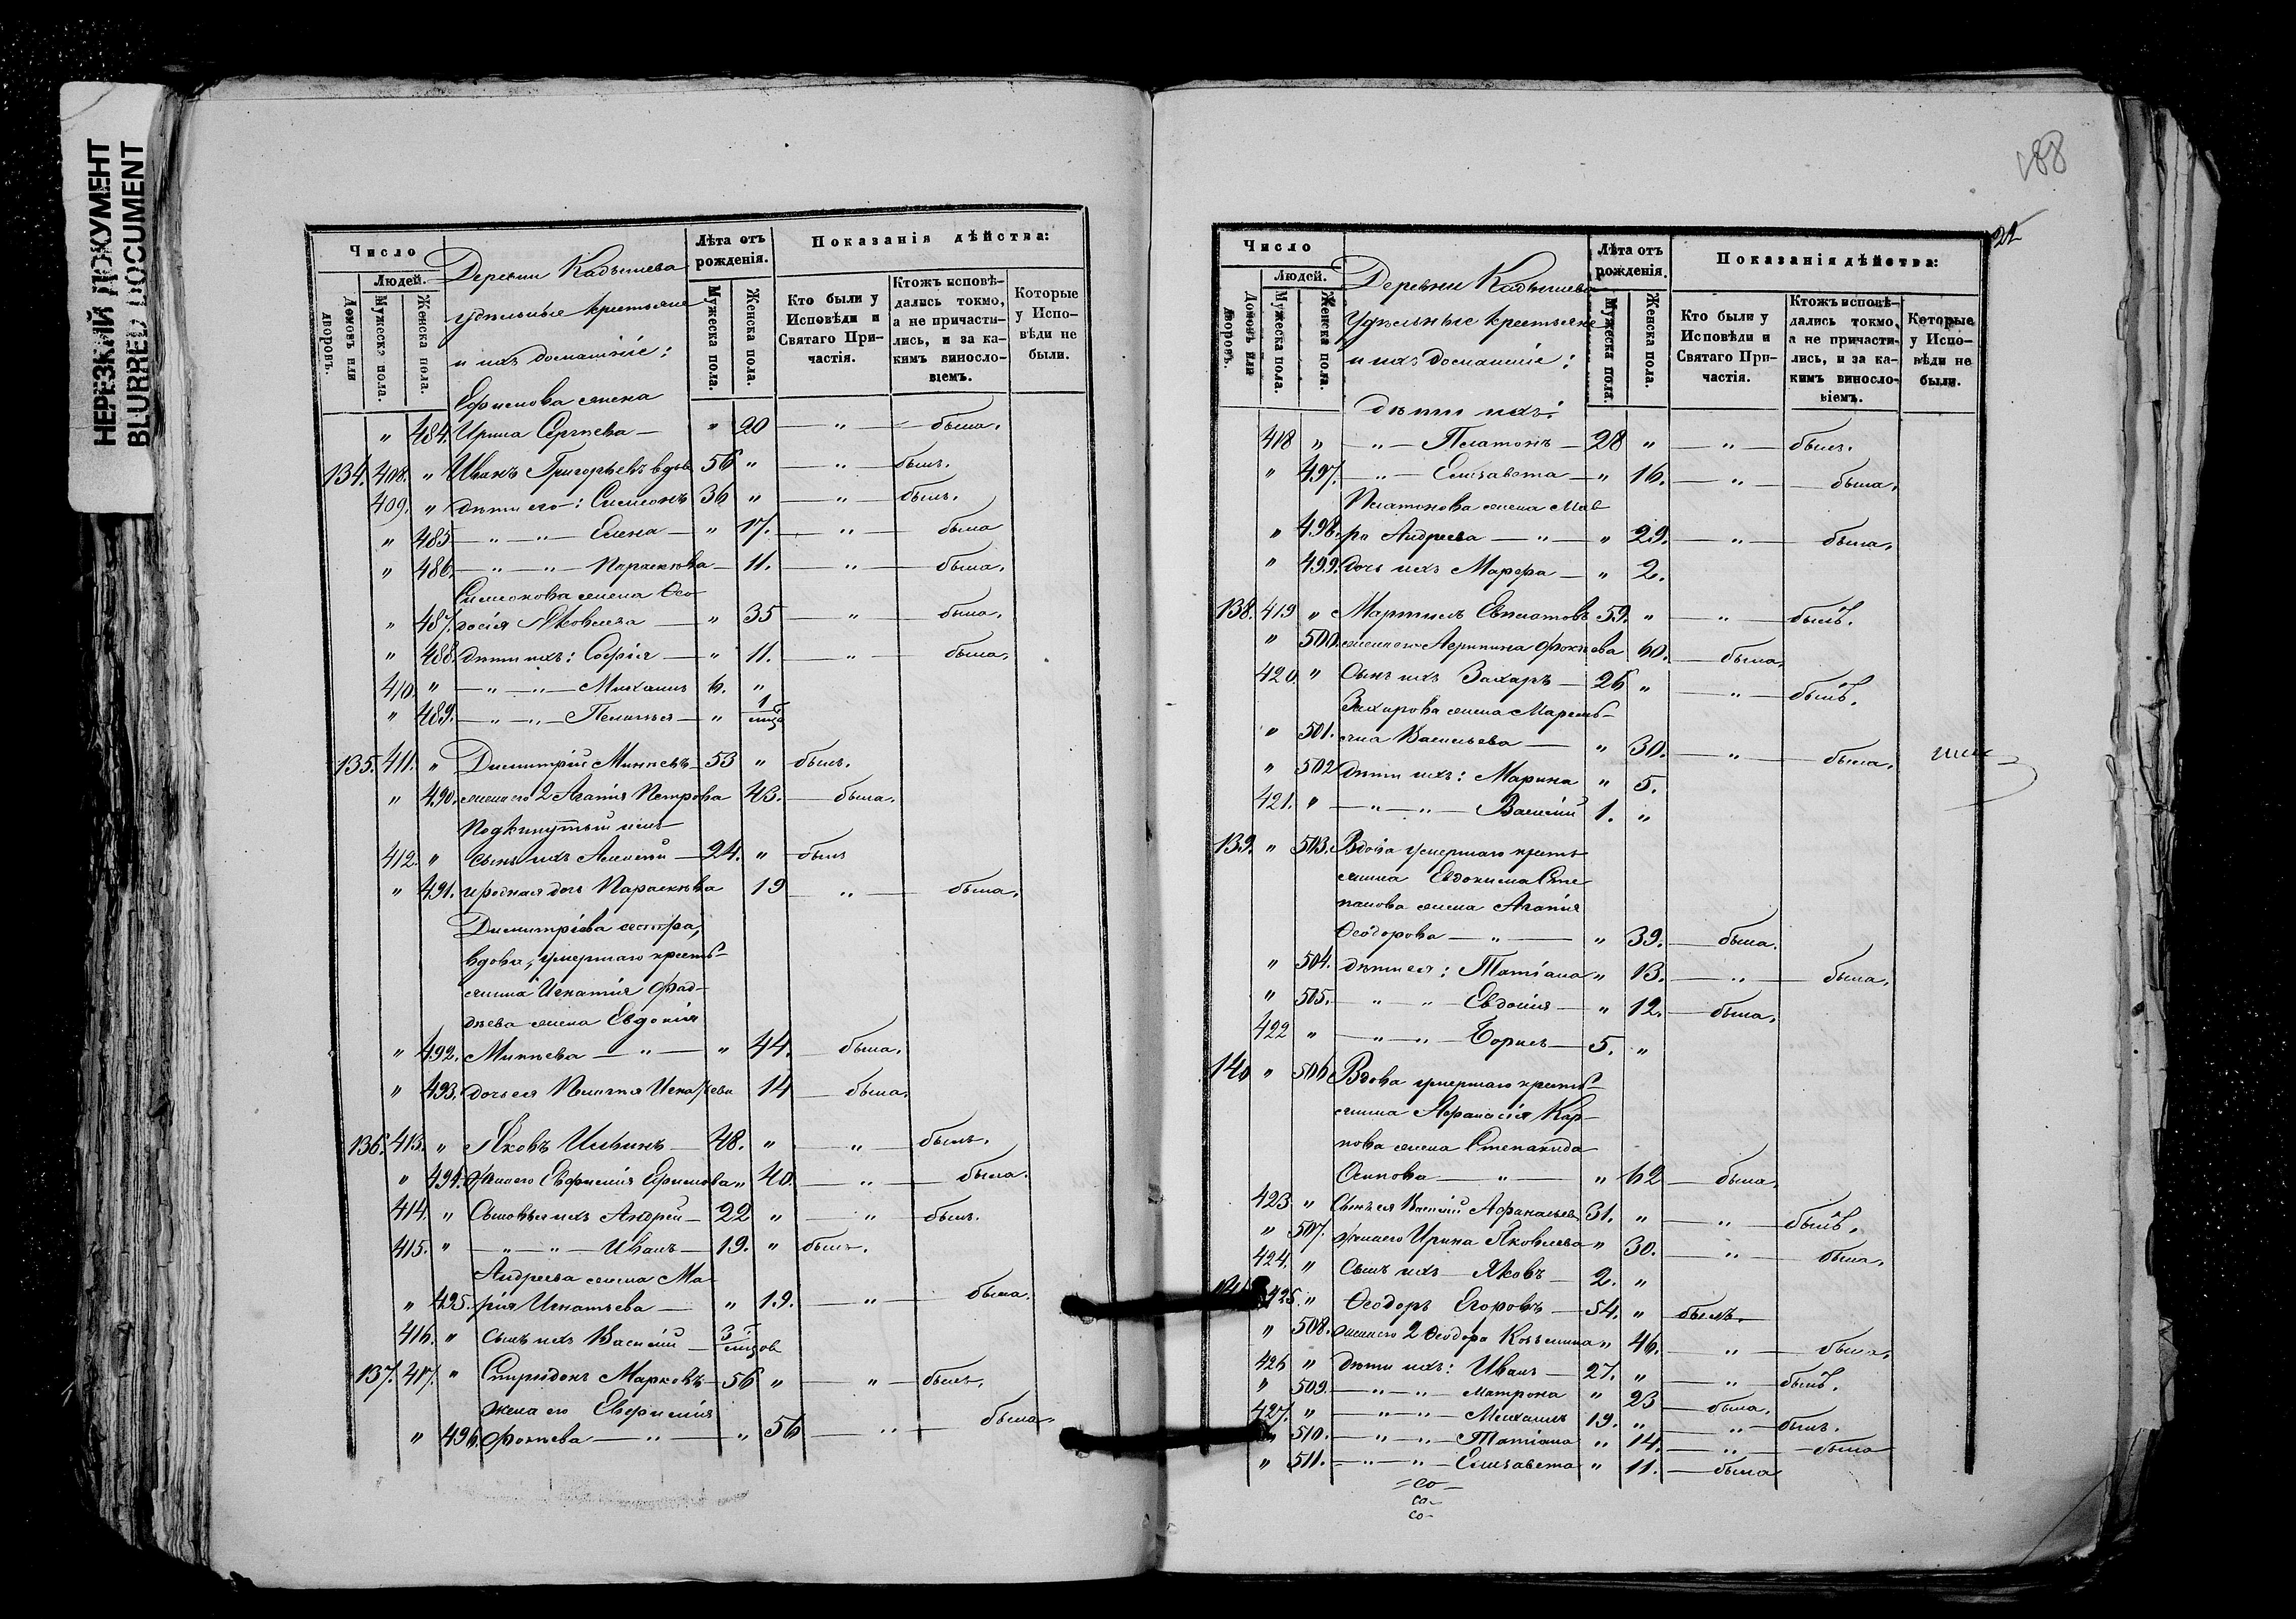 НЕРЕЗКИЙ ДОКУМЕНТ
BLURRED DOCUMENT
Число
Людей.
Домовъ или дворовъ.
Мужеска пола.
Женска пола.
Деревни Кадышева
удѣльные крестьяне
и ихъ домашніе:
Лѣта отъ рожденія.
Мужеска пола.
Женска пола.
Показанія дѣйства:
Кто были у Исповѣди и Святаго Причастія.
Ктожъ исповѣдались токмо, а не причастились, и за какимъ винословіемъ.
Которые у Исповѣди не были.
Ефимова жена
" 484. Ирина Сергѣева — " 20 — " — была.
134. 408. " Иванъ Григорьевъ вдов 56 " — " — былъ.
409. " дѣти его: Симеонъ 36 " — " — былъ.
" 485 — " — " — Елена — " 17. — " — была
" 486. — " — " — Параскева — 11. — " — была.
Симеонова жена Ѳео-
" 487. досія Яковлева — " 35 — " — была.
" 488. дѣти ихъ: Софія — " 11. — " — была.
410. " — " — " — Михаилъ 6. "
" 489. — " — " — Пелагея — " 1
135. 411. " Димитрій Минѣевъ 53 " былъ.
" 490. жена его 2 Агапія Петрова 43. — была.
Подкинутый имъ
412. " сынъ ихъ Алексѣй — 24. " — былъ
" 491. дочь Параскева 19 — " — была.
Димитріева сестра,
вдова, умершаго кресть-
янина Игнатія Фад-
дѣева жена Евдокія
" 492. Минѣева — " — " 44. была.
" 493. дочь ея Пелагея Игнатьева 14 — была.
136. 413. " Яковъ Ильинъ — 48. " — " — былъ.
" 494. Жена его Евфимія Ефимова " 40. — " — была.
414. " Сыновья ихъ Андрей — 22 " — " — былъ.
415. " — " — " — Иванъ — 19. " былъ.
Андреева жена Ма-
" 495. рія Игнатьева — " 19. — " — была.
416. " сынъ ихъ Василій — 3
137. 417. " Спиридонъ Марковъ — 56 " — " — былъ.
Жена его Евфимія
" 496. Фокѣева — " — " 56 — " — была.
188
22
Число
Людей.
Домовъ или дворовъ.
Мужеска пола.
Женска пола.
Деревни Кадышева
Удѣльные крестьяне
и ихъ домашніе:
Лѣта отъ рожденія.
Мужеска пола.
Женска пола.
Показанія дѣйства:
Кто были у Исповѣди и Святаго Причастія.
Ктожъ исповѣдались токмо, а не причастились, и за какимъ винословіемъ.
Которые у Исповѣди не были.
дѣти ихъ:
418 " — " — Платонъ — 28 " — " — былъ.
" 497. — " — Елисавета — " 16. — " — была.
Платонова жена Мав-
" 498. ра Андреева — " — " 29. — " — была.
" 499. дочь ихъ Марфа — " 2.
138. 419 " Мартинъ Евплатовъ 59. " — " — былъ.
" 500. жена его Агрипина Фокѣева 60. — была.
420. " Сынъ ихъ Захаръ — 26 " — " — былъ.
Захарова жена Маремь-
" 501. яна Васильева — " 30. — " — была.
" 502 дѣти ихъ: Марина " 5.
421. " — " — " — Василій 1. "
139. " 503. Вдова умершаго кресть-
янина Евдокима Сте-
панова жена Агапія
Ѳеодорова — " — " 39. — была.
" 504. дѣти ея: Татіана " 13. — " — была.
" 505. — " — " — Евдокія — " 12. — была.
422 " — " — " — Борисъ — 5. "
140 " 506 Вдова умершаго кресть-
янина Афанасія Кар-
пова жена Степанида
Осипова — " — " 62 — была.
423 " Сынъ ея Василій Афанасьевъ 31. " — " — былъ.
" 507. Жена его Ирина Яковлева " 30. — " — была.
424. " Сынъ ихъ — Яковъ — 2. "
141 425. " Ѳеодоръ Егоровъ — 54. " былъ.
" 508. жена его 2 Ѳеодора Козьмина " 46. — " — была.
426 " дѣти ихъ: Иванъ — 27. " — " — былъ.
" 509. — " — " — Матрона " 23 — была.
427. " — " — " — Михаилъ 19. " — " — былъ.
" 510. — " — " — Татіана " 14. — " — была
" 511. — " — " — Елисавета " 11. — была